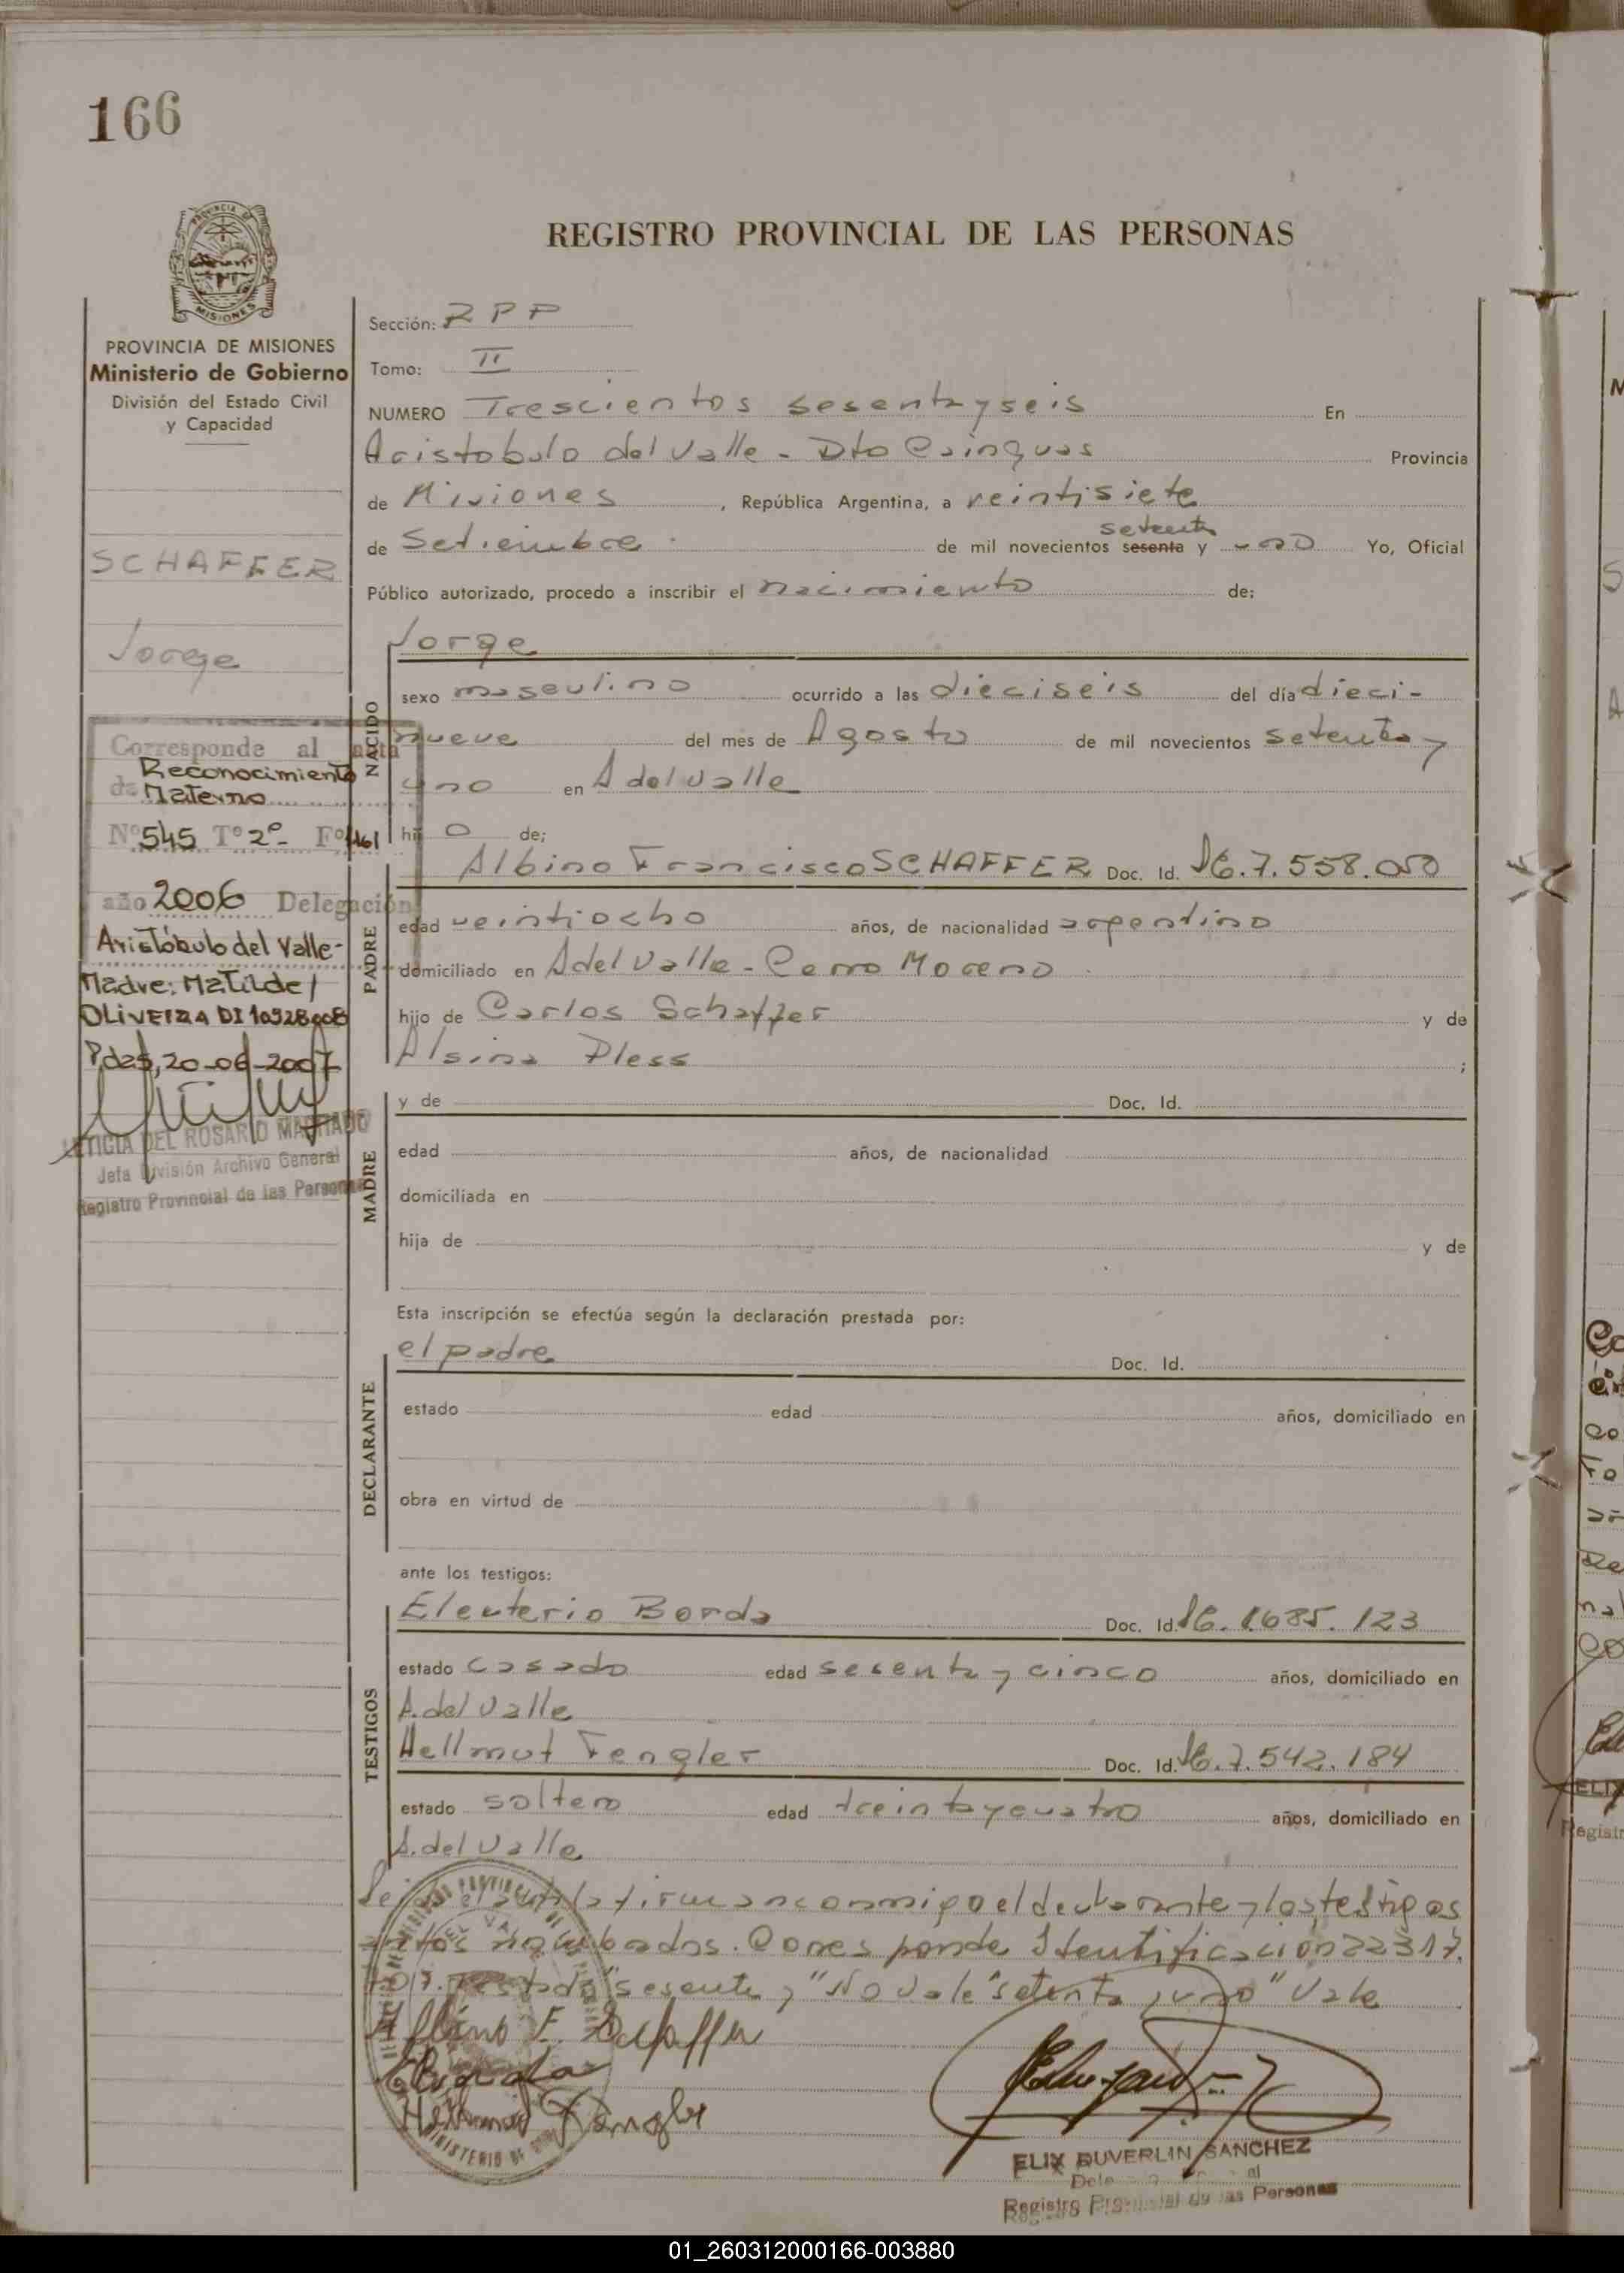 166
REGISTRO PROVINCIAL DE LAS PERSONAS
PROVINCIA DE MISIONES
Ministerio de Gobierno
División del Estado Civil
y Capacidad
SCHAFFER
Jorge
Corresponde al acta
de Reconocimiento
Materno
Nº 545 Tº 2º- Fº 161
año 2006 Delegación
Aristóbulo del Valle-
Madre: Matilde
OLIVEIRA DI 10928008
Pdas, 20-06-2007
LETICIA DEL ROSARIO MACHADO
Jefa División Archivo General
Registro Provincial de las Personas
Sección: R P P
Tomo: II
NUMERO Trescientos sesentayseis En
Aristobulo del Valle - Dto Cainguas Provincia
de Misiones, República Argentina, a veintisiete
de Setiembre de mil novecientos sesenta setenta y uno Yo, Oficial
Público autorizado, procedo a inscribir el nacimiento de:
NACIDO
Jorge
sexo masculino ocurrido a las dieciseis del día dieci-
nueve del mes de Agosto de mil novecientos setenta y
uno en A del Valle
hijo de;
PADRE
Albino Francisco SCHAFFER Doc. Id. 7.558.050
edad veintiocho años, de nacionalidad argentino
domiciliado en A del Valle - Cerro Moreno
hijo de Carlos Schaffer y de
Alsina Pless ;
MADRE
y de Doc. Id.
edad años, de nacionalidad
domiciliada en
hija de y de
Esta inscripción se efectúa según la declaración prestada por:
DECLARANTE
el padre Doc. Id.
estado edad años, domiciliado en
obra en virtud de
ante los testigos:
TESTIGOS
Eleuterio Borda Doc. Id. 123
estado casado edad sesenta y cinco años, domiciliado en
A. del Valle
Hellmut Fengler Doc. Id. 7.542.184
estado soltero edad treintaycuatro años, domiciliado en
A. del Valle
el acta la firman conmigo el declarante y los testigos
Corresponde Identificacion 22317.
"sesenta y" No Vale "setenta y uno" Vale
Albino F. Schaffer
Hellmut Fengler
ELIX DUVERLIN SANCHEZ
Registro Provincial de las Personas
01_260312000166-003880